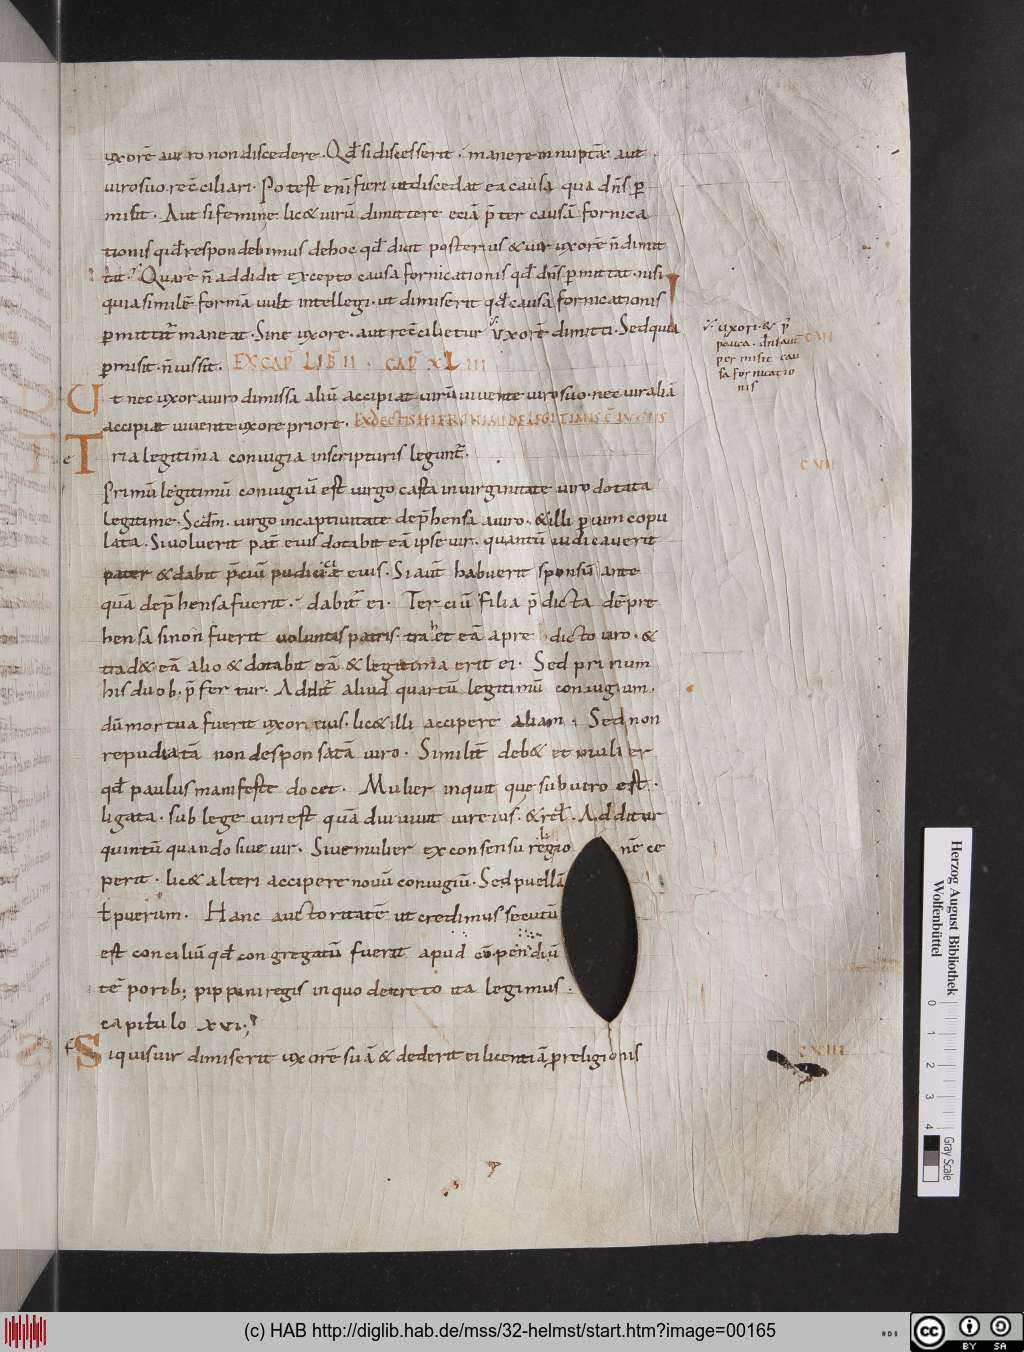 uxorē a uiro non discedere. Qđ si discesserit. manere innuptā aut
uiro suo recciliari. Potest enī fieri ut discedat ea causa qua dn̄s p̱
misit. Aut si femine lic& uirū dimittere eciā p̄ter causā fornica
tionis quid respondebimus de hoc qđ dicit posterius & uir uxorē n̄ dimit
tat. Quare n̄ addidit excepto causa fornicationis qđ dn̄s p̱mittat. nisi
quia similē formā uult intellegi. ut si dimiserit qđ causa fornicationis
p̱mittitur maneat. Sine uxore. aut reccilietur uxorē dimitti. Sed quia
p̱misit. n̄ iussit. EX CAP̄ LIB̄ II. CAP̄ XLIII
Ut nec uxor a uiro dimissa aliū accipiat uirū uiuente uiro suo. nec uir aliā
accipiat uiuente uxore priore. EX DECTIS HIERONIMI DE LEGITIMIS C̄IUGIIS
Tria legitima coniugia in scripturis leguntr̄.
Primū legitimū coniugiū est uirgo casta in uirginitate uiro dotata
legitime. Scdm̄. uirgo in captiuitate dep̄hensa a uiro. & illi p̱ uim copu
lata. Si uoluerit pat̄ eius dotabit eā ipse uir. quantū iudicauerit
pater & dabit p̄ciū pudicitiae eius. Si aut̄ habuerit sponsū ante
quā dep̄hensa fuerit. dabitr̄ ei. Terciū filia p̄dicta dep̄re
hensa si non fuerit uoluntas patris. trahet eā a predicto uiro. &
trad& eā alio & dotabit eā & legitima erit ei. Sed primum
his duob. p̄fertur. Additr̄ aliud quartū legitimū coniugium.
dū mortua fuerit uxor eius. lic& illi accipere aliam. Sed non
repudiatā non desponsatā uiro. Similit̄ deb& et mulier
qđ paulus manifeste docet. Mulier inquit que sub uiro est.
ligata. sub lege uiri est quā diu uiuit uir eius. & rel̄. Additur
quintū quando siue uir. Siue mulier ex consensu religionē ce
perit. lic& alteri accipere nouū coniugiū. Sed puellā
ł puerum. Hanc auctoritatē ut credimus secutū
est conciliū qđ congregatū fuerat apud cōpendiū
tē porib; pippini regis in quo decreto ita legimus.
capitulo xvi;
Si quis uir dimiserit uxorē suā & dederit ei licentiā p̱ religionis
uxori. & p̄
pauca. dn̄s aut
permisit cau
sa fornicatio
nis
CVI
CVII
CVIII
Herzog August Bibliothek
Wolfenbüttel
0 1 2 3 4
Gray Scale
(c) HAB http://diglib.hab.de/mss/32-helmst/start.htm?image=00165
cc
BY SA